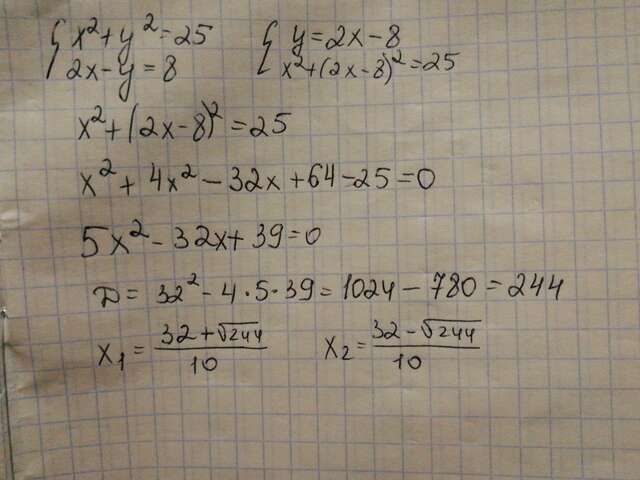 { x² + y² = 25 { y = 2x - 8
2x - y = 8 x² + (2x - 8)² = 25
x² + (2x - 8)² = 25
x² + 4x² - 32x + 64 - 25 = 0
5x² - 32x + 39 = 0
D = 32² - 4 · 5 · 39 = 1024 - 780 = 244
x₁ = (32 + √244)/10 x₂ = (32 - √244)/10